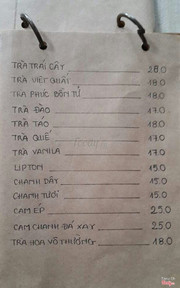 TRÀ TRÁI CÂY 28.0
TRÀ VIỆT QUẤT 18.0
TRÀ PHÚC BỒN TỬ 18.0
TRÀ ĐÀO 17.0
TRÀ TÁO 18.0
TRÀ QUẾ 17.0
TRÀ VANILA 17.0
LIPTON 15.0
CHANH DÂY 15.0
CHANH TƯƠI 15.0
CAM ÉP 25.0
CAM CHANH ĐÁ XAY 25.0
TRÀ HOA VÔ THƯỜNG 18.0